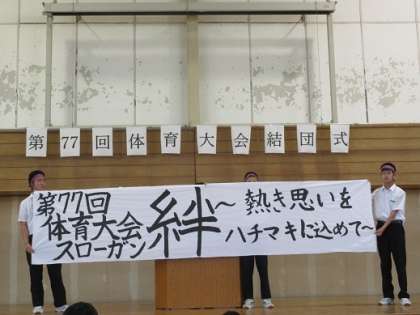 第77回体育大会結団式
第77回
体育大会
スローガン
絆～熱き思いを
ハチマキに込めて～